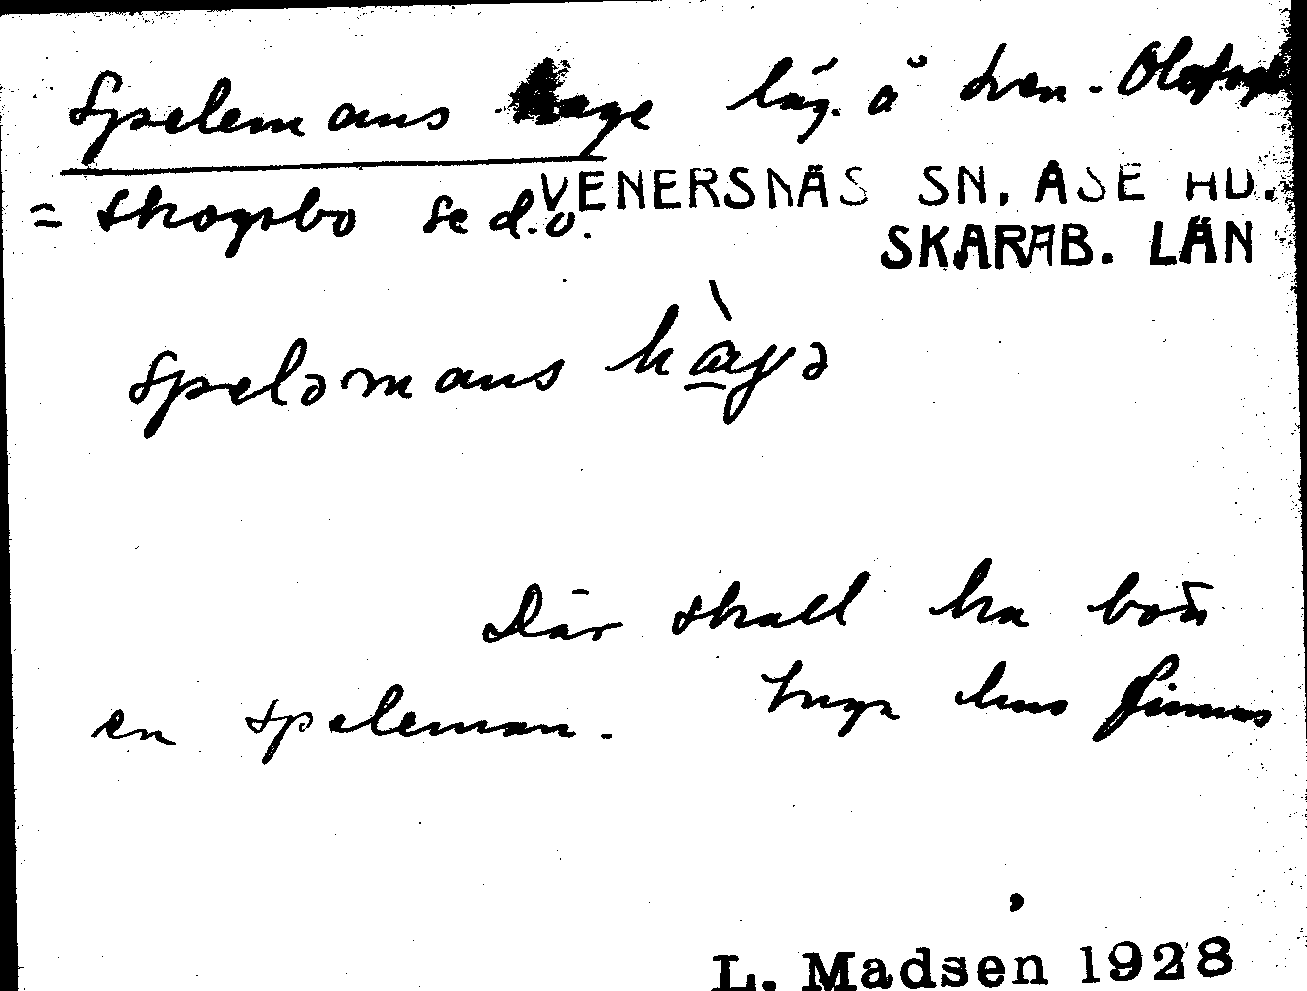 Spelemans hage läg. å Sven-Olofs
= Skogsbo se d.o. VENERSNÄS SN. ÅSE HD.
SKARAB. LÄN
Speləmans hàgə
Där skall ha bott
en speleman. Inga hus finnas
L. Madsen 1928